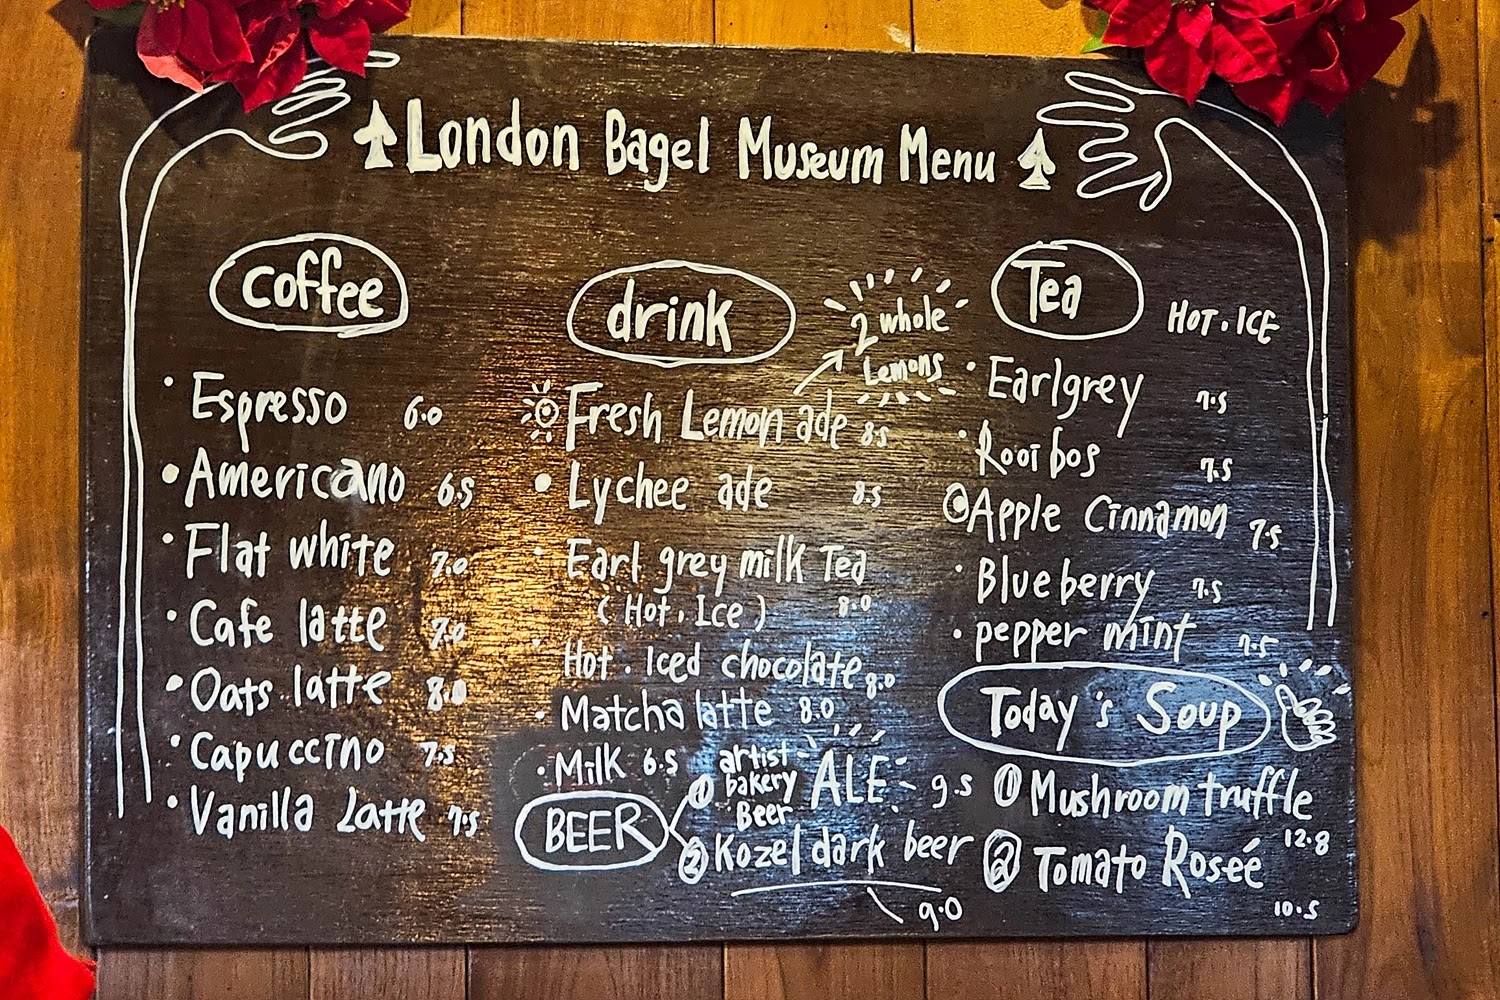 ♠London Bagel Museum Menu♠
coffee
• Espresso 6.0
• Americano 6.5
• Flat white 7.0
• Cafe latte 7.0
• Oats latte 8.0
• Capuccino 7.5
• Vanilla Latte 7.5
drink
2 whole
Lemons
Fresh Lemon ade 8.5
• Lychee ade 8.5
• Earl grey milk Tea
(Hot, Ice) 8.0
• Hot. Iced chocolate 8.0
• Matcha latte 8.0
• Milk 6.5
BEER
① artist
bakery
Beer
ALE 9.5
② Kozel dark beer
9.0
Tea
HOT. ICE
• Earlgrey 7.5
• Rooibos 7.5
Apple Cinnamon 7.5
• Blueberry 7.5
• pepper mint 7.5
Today's Soup
① Mushroom truffle
12.8
② Tomato Roseé
10.5